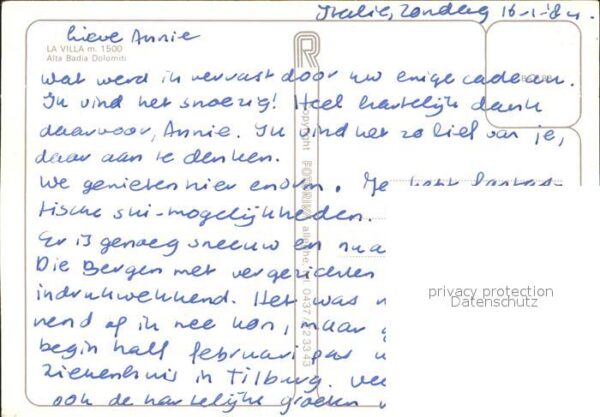 Italie, Zondag 16-1-84.
Lieve Annie
LA VILLA m. 1500
Alta Badia Dolomiti
wat werd ik verrast door uw enige cadeau.
Ik vind het snoezig! Heel hartelijk dank
daarvoor, Annie. Ik vind het zo lief van je,
daar aan te denken.
We genieten hier enorm. Je hebt fantas-
tische ski-mogelijkheden.
Er is genoeg sneeuw en
Die Bergen met vergezichten
indrukwekkend. Het was
nend of ik mee kon, maar
begin half februari pas
ziekenhuis in Tilburg.
ook de hartelijke groeten
copyright FOTO
0437/72 33 43
privacy protection
Datenschutz